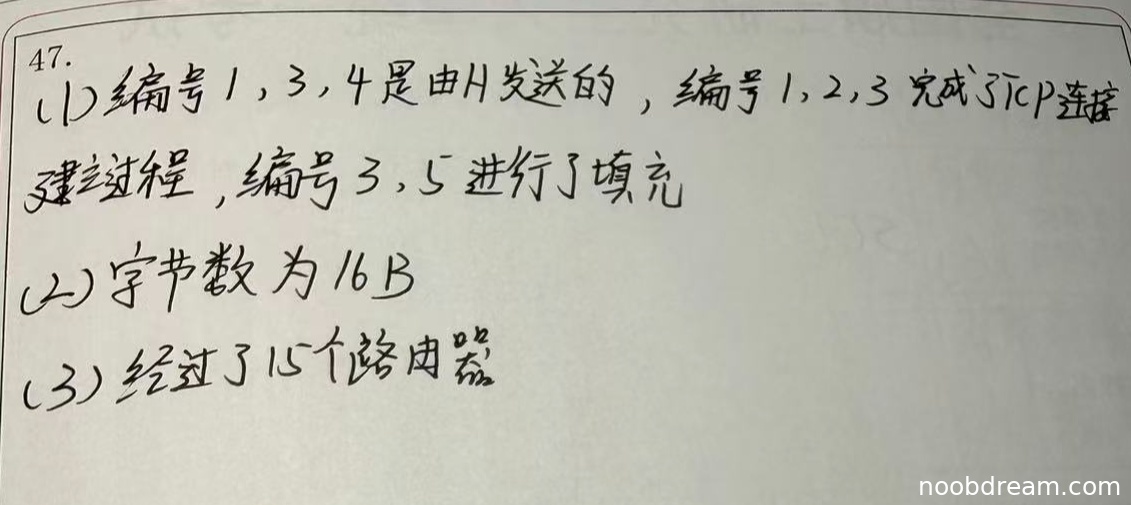 47.
(1)编号1,3,4是由H发送的,编号1,2,3完成了TCP连接
建立过程,编号3,5进行了填充
(2)字节数为16B
(3)经过了15个路由器
noobdream.com